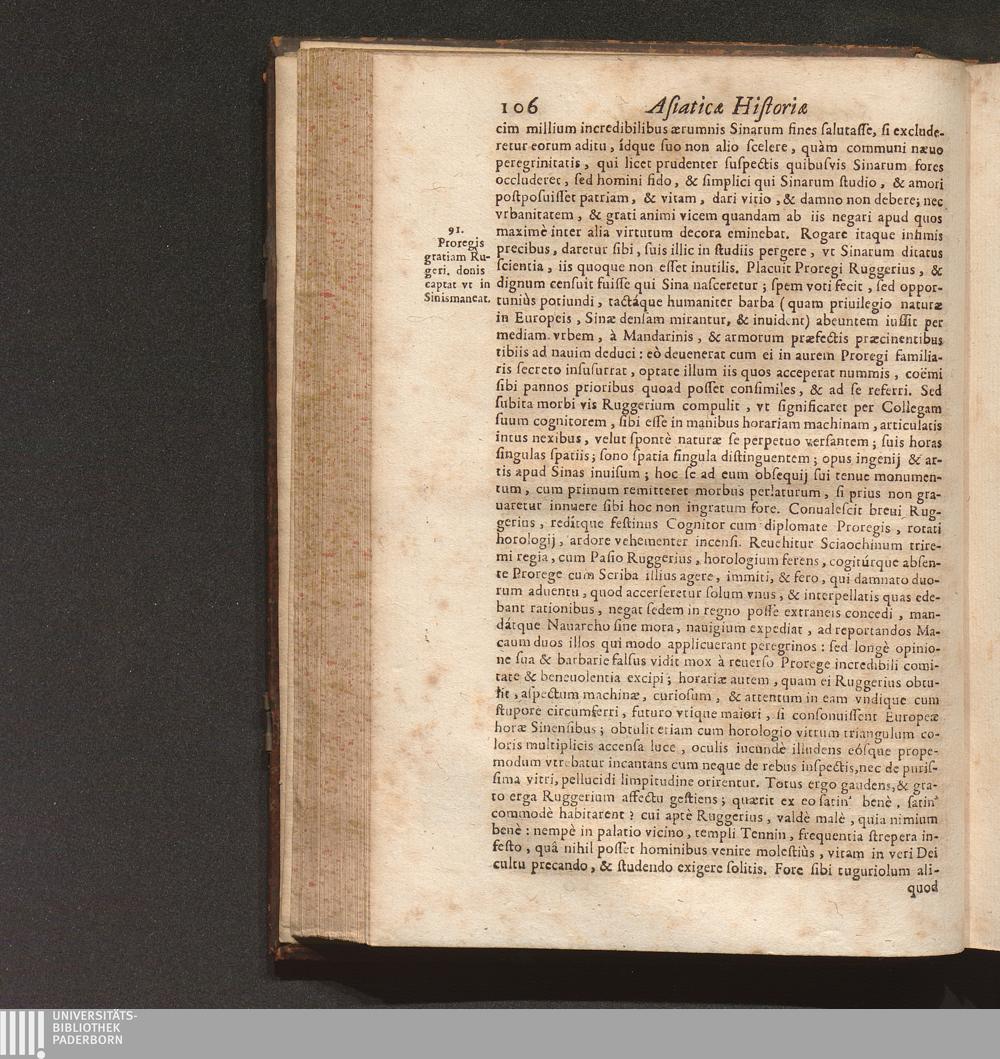 106 Asiaticæ Historiæ
cim millium incredibilibus ærumnis Sinarum fines salutasse, si exclude-
retur eorum aditu, ídque suo non alio scelere, quàm communi næuo
peregrinitatis, qui licet prudenter suspectis quibusvis Sinarum fores
occluderet, sed homini fido, & simplici qui Sinarum studio, & amori
postposuisset patriam, & vitam, dari vitio, & damno non debere; nec
vrbanitatem, & grati animi vicem quandam ab iis negari apud quos
maximè inter alia virtutum decora eminebat. Rogare itaque infimis
precibus, daretur sibi, suis illic in studiis pergere, vt Sinarum ditatus
scientia, iis quoque non esset inutilis. Placuit Proregi Ruggerius, &
dignum censuit fuisse qui Sina nasceretur; spem voti fecit, sed oppor-
tuniùs potiundi, tactáque humaniter barba (quam priuilegio naturæ
in Europeis, Sinæ densam mirantur, & inuident) abeuntem iussit per
mediam vrbem, à Mandarinis, & armorum præfectis præcinentibus
tibiis ad nauim deduci: eò deuenerat cum ei in aurem Proregi familia-
ris secreto insusurrat, optare illum iis quos acceperat nummis, coëmi
sibi pannos prioribus quoad posset consimiles, & ad se referri. Sed
subita morbi vis Ruggerium compulit, vt significaret per Collegam
suum cognitorem, sibi esse in manibus horariam machinam, articulatis
intus nexibus, velut spontè naturæ se perpetuo versantem; suis horas
singulas spatiis; sono spatia singula distinguentem; opus ingenij & ar-
tis apud Sinas inuisum; hoc se ad eum obsequij sui tenue monumen-
tum, cum primum remitteret morbus perlaturum, si prius non gra-
uaretur innuere sibi hoc non ingratum fore. Conualescit breui Rug-
gerius, redítque festinus Cognitor cum diplomate Proregis, rotati
horologij, ardore vehementer incensi. Reuehitur Sciaochinum trire-
mi regia, cum Pasio Ruggerius, horologium ferens, cogitúrque absen-
te Prorege cum Scriba illius agere, immiti, & fero, qui damnato duo-
rum aduentu, quod accerseretur solum vnus, & interpellatis quas ede-
bant rationibus, negat sedem in regno posse extraneis concedi, man-
dátque Nauarcho sine mora, nauigium expediat, ad reportandos Ma-
caum duos illos qui modo applicuerant peregrinos: sed longè opinio-
ne sua & barbarie falsus vidit mox à reuerso Prorege incredibili comi-
tate & beneuolentia excipi; horariæ autem, quam ei Ruggerius obtu-
lit, aspectum machinæ, curiosum, & attentum in eam vndique cum
stupore circumferri, futuro vtique maiori, si consonuissent Europeæ
horæ Sinensibus; obtulit etiam cum horologio vitrum triangulum co-
loris multiplicis accensa luce, oculis iucundè illudens eósque prope-
modum vtrebatur incantans cum neque de rebus inspectis,nec de puris-
sima vitri, pellucidi limpitudine orirentur. Totus ergo gaudens,& gra-
to erga Ruggerium affectu gestiens; quærit ex eo satin' benè, satin'
commodè habitarent? cui aptè Ruggerius, valdè malè, quia nimium
benè: nempè in palatio vicino, templi Tennin, frequentia strepera in-
festo, quâ nihil posset hominibus venire molestiùs, vitam in veri Dei
cultu precando, & studendo exigere solitis. Fore sibi tuguriolum ali-
quod
91.
Proregis
gratiam Ru-
geri. donis
captat vt in
Sinis maneat.
UNIVERSITÄTS-
BIBLIOTHEK
PADERBORN